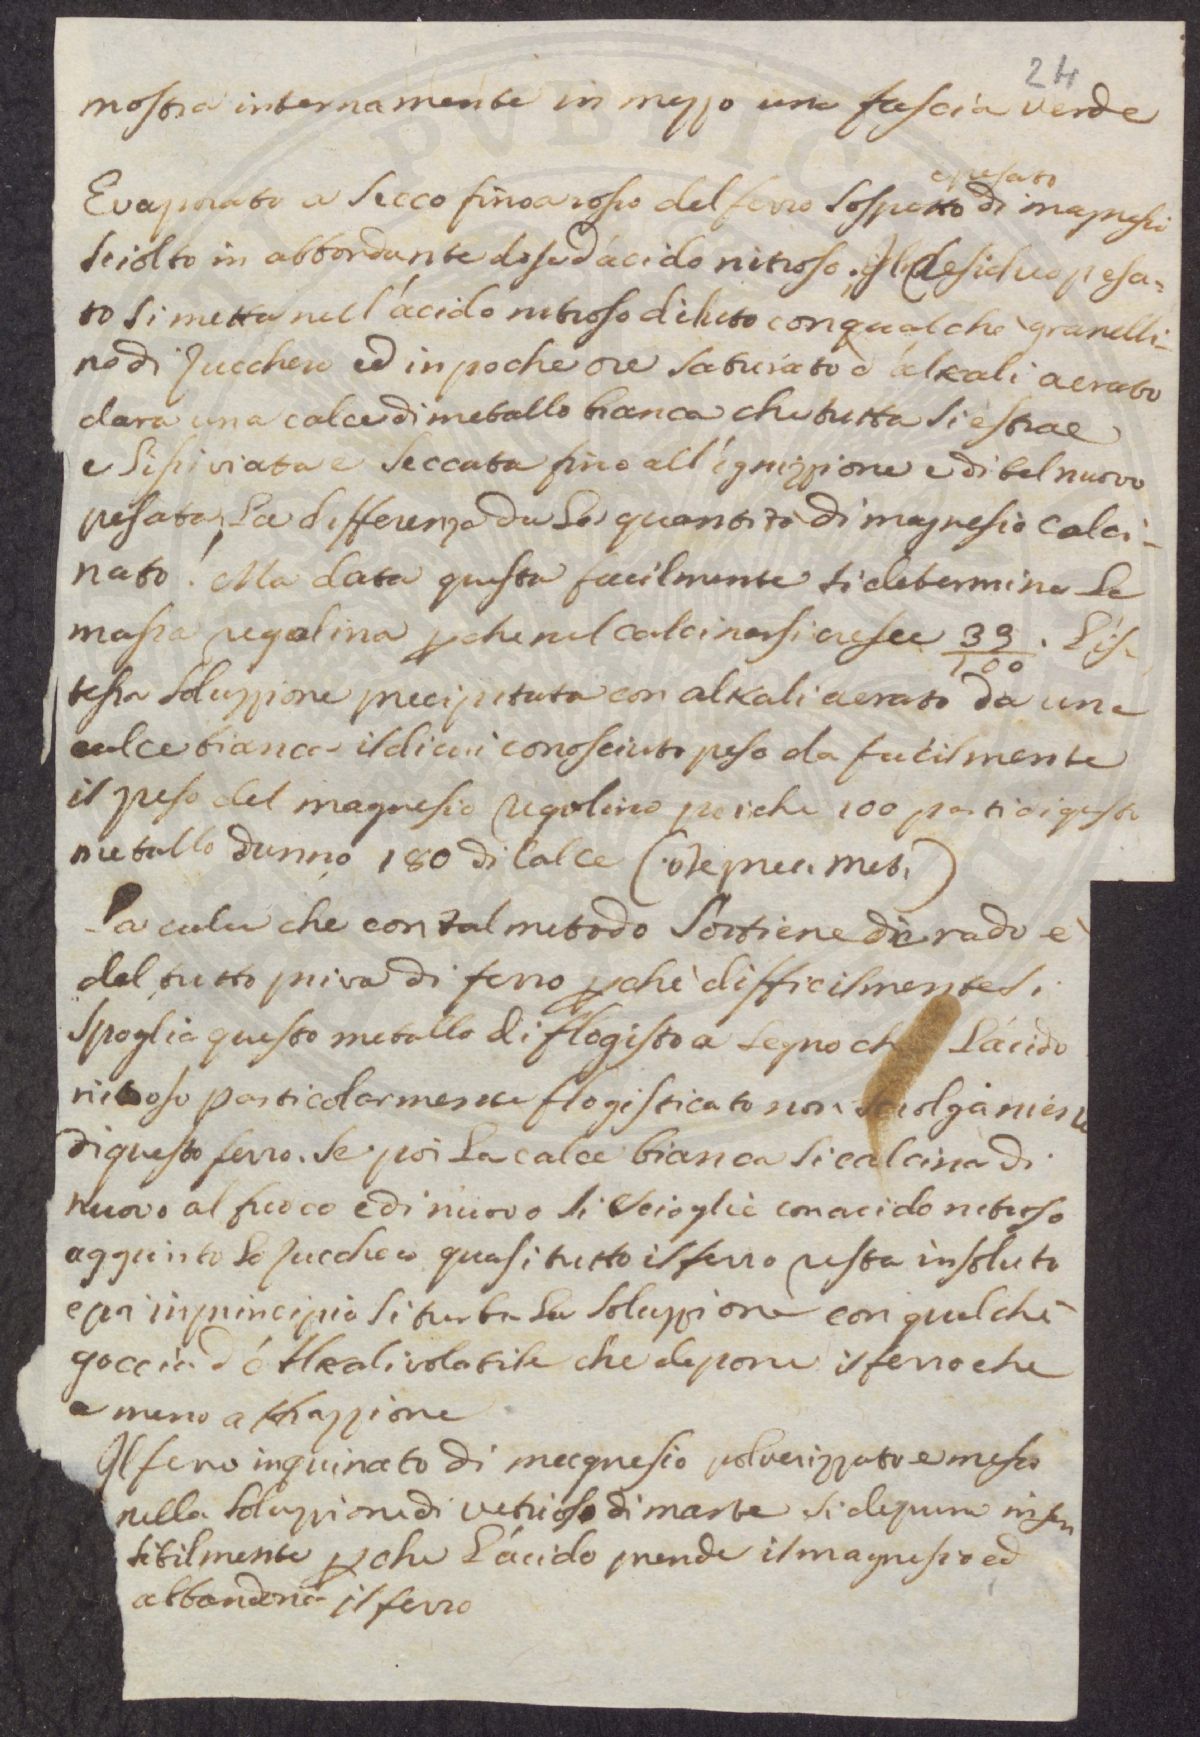 24
mostra internamente in mezzo una fascia verde
e pesato
Evaporato a secco fino a rosso del ferro sospetto di magnesio
sciolto in abbondante dose d'acido nitroso. Il residuo pesa=
to si metta nell'acido nitroso diluto con qualche granelli-
no di zucchero ed in poche ore saturato d'alkali aerato
dara una calce di metallo bianca che tutta si estrae
e lisiviata e seccata fino all'ignizzione e di bel nuovo
pesata, La differenza da La quantità di magnesio calci-
nato! Ma data questa facilmente si determina La
massa regolina pche nel calcinarsi cresce 39/100. L'is
tessa soluzzione precipitata con alkali aerato da una
calce bianca il di cui conosciuto peso da facilmente
il peso del magnesio regolino poiche 100 parti di questo
metallo danno 180 di calce (Met.)
La calce che con tal metodo s'ottiene di rado e'
del tutto priva di ferro pchè difficilmente si
spoglia questo metallo di flogisto a segno che L'acido
nitroso particolarmente flogisticato non sciolga niente
di questo ferro. Se poi La calce bianca si calcina di
nuovo al fuoco e di nuovo si scioglie con acido nitroso
aggiunto Lo zucchero quasi tutto il ferro resta insoluto
e poi in principio si turba La soluzzione con qualche
goccia d'Alkali volatile che depone il ferro che
a meno attrazzione
Il ferro inquinato di magnesio polverizzato e messo
nella soluzzione di vetriolo di marte si depura insen
sibilmente pche L'acido prende il magnesio ed
abbandona il ferro